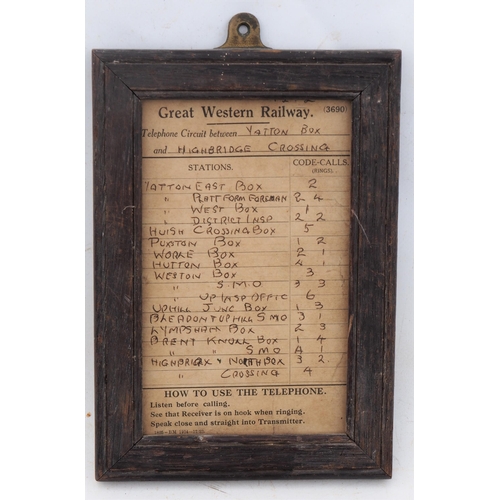 Great Western Railway.
(3690)
Telephone Circuit between YATTON BOX
and HIGHBRIDGE CROSSING
STATIONS. CODE-CALLS.
(RINGS)
YATTON EAST BOX 2
" PLATTFORM FOREMAN 2 4
" WEST BOX 1
" DISTRICT INSP 2 2
HUISH CROSSING BOX 5
PUXTON BOX 1 2
WORLE BOX 2 1
HUTTON BOX 4 1
WESTON BOX 3
" S.M.O 3 3
" UP INSP OFFIC 6
UPHILL JUNC BOX 1 3
BLEADON & UPHILL SMO 3 1
LYMPSHAM BOX 2 3
BRENT KNOLL BOX 1 4
" " SMO 4 1
HIGHBRIDGE NORTH BOX 3 2
" CROSSING 4
HOW TO USE THE TELEPHONE.
Listen before calling.
See that Receiver is on hook when ringing.
Speak close and straight into Transmitter.